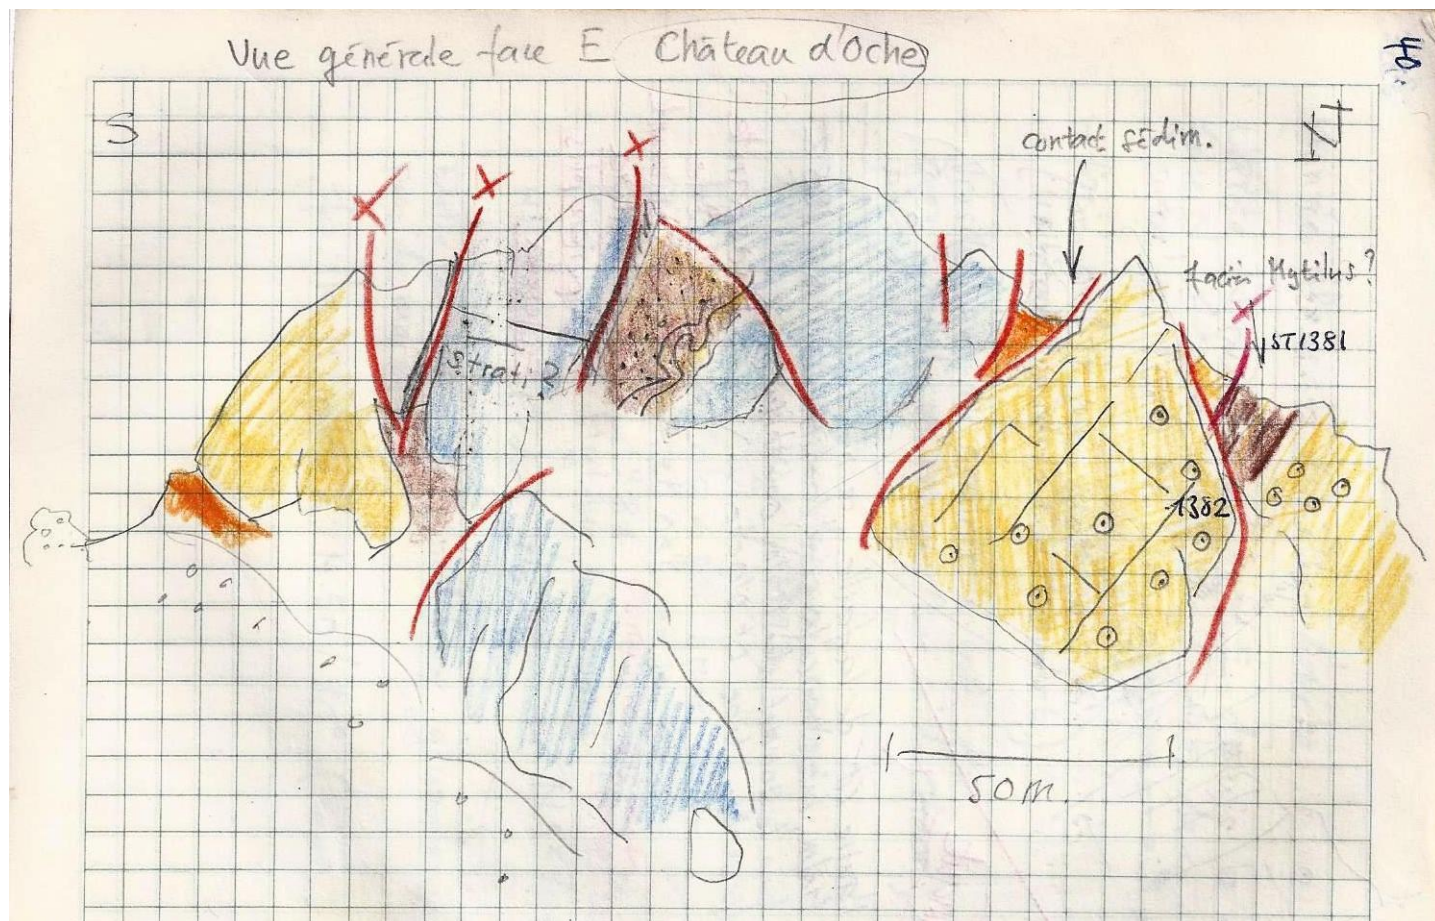 Vue générale face E Château d'Oche
S
N
contact sédim.
faciès Mytilus?
ST1381
strati?
1382
50m.